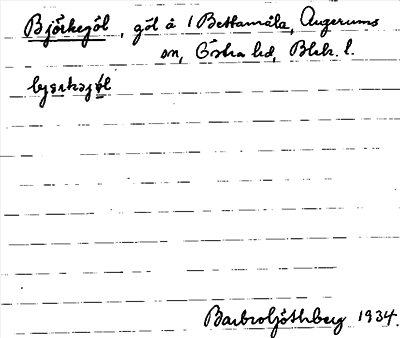 Björkegöl, göl å 1 Bettamåla, Augerums
sn, Östra hd, Blek. l.
bjərkəjøl
Barbro Ljóthberg 1934.